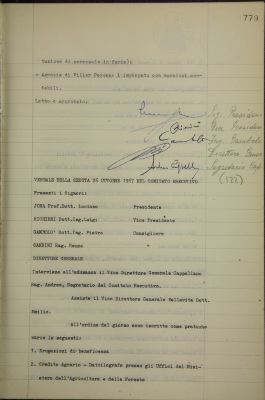 779
tuzione di personale in ferie);
- Agenzia di Villar Perosa: 1 impiegato con mansioni con-
tabili.
Letto e approvato.
VERBALE DELLA SEDUTA 26 OTTOBRE 1957 DEL COMITATO ESECUTIVO
Presenti i Signori:
JONA Prof.Dott. Luciano Presidente
RICHIERI Dott.Ing.Luigi Vice Presidente
GAMBOLO' Dott.Ing. Pietro Consigliere
CANDINI Rag. Senso
DIRETTORE GENERALE
Interviene all'adunanza il Vice Direttore Generale Cappellano
Rag. Andrea, Segretario del Comitato Esecutivo.
Assiste il Vice Direttore Generale Bellavita Dott.
Emilio.
All'ordine del giorno sono iscritte come pratiche
varie le seguenti:
1. Erogazioni di beneficenza
2. Credito Agrario - Dattilografa presso gli Uffici del Mini-
stero dell'Agricoltura e delle Foreste